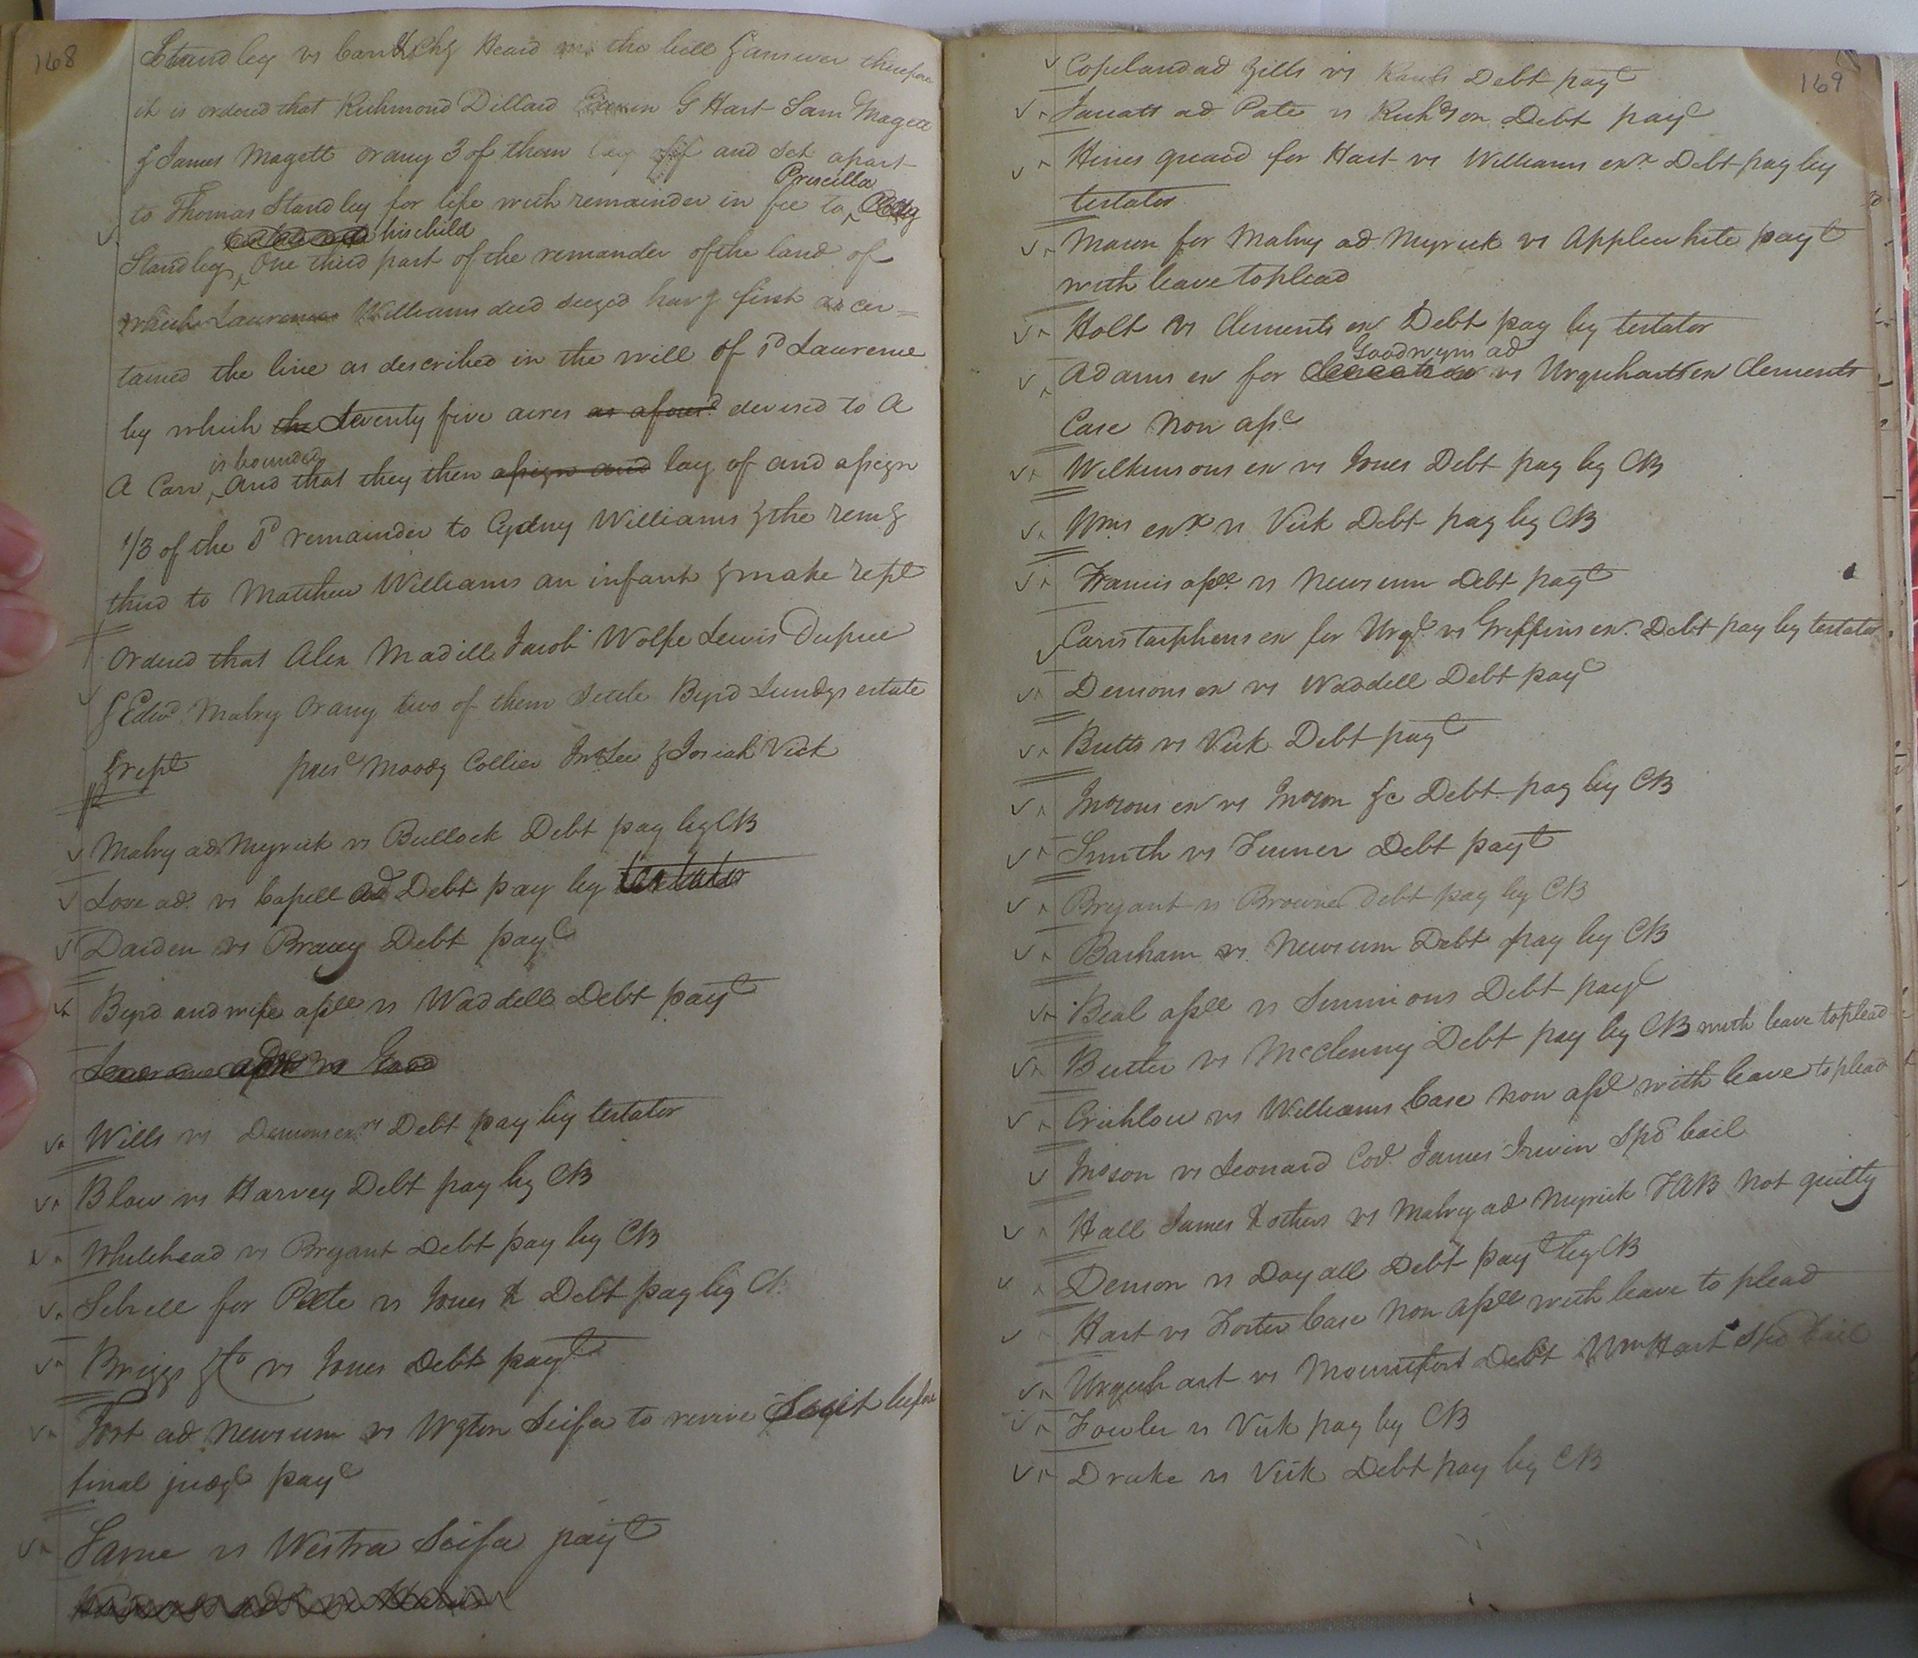 168
Standley vs Carr & Chy Heard on the bill & answer therefore
it is ordered that Richmond Dillard Edwin G Hart Sam Magett
& James Magett or any 3 of them lay off and set apart
Priscilla
to Thomas Standley for life with remainder in fee to
his child
Standley One third part of the remainder of the land of
which Laurence Williams died seized havg first ascer=
tained the line as described in the will of sd Laurence
by which the Seventy five acres as aforesd devised to A
is bounded
A Carr and that they then assign and lay of and assign
1/3 of the sd remainder to Cydny Williams & the remg
third to Matthew Williams an infant & make rept
Ordered that Alex Madill Jacob Wolfe Lewis Dupree
& Edwd Malry or any two of them settle Byrd Lundys estate
& rept prest Moody Collier Jno Lee & Josiah Vick
Malry ad Myrick vs Bullock Debt pay by CB
Love ad vs Capell ad Debt pay by testator
Darden vs Brany Debt payt
Byrd and wife assee vs Waddell Debt payt
Wills vs Demons exrs Debt pay by testator
Blow vs Harvey Debt pay by CB
Whitehead vs Bryant Debt pay by CB
Sebrell for Pate vs Jones & Debt pay by C
Briggs &c vs Jones Debt payt
Fort ad Newsum vs Wgton Scifa to revive Suit before
final judgt payt
Same vs Westra Scifa payt
169
Copeland ad Gills vs Debt payt
Jarratt ad Pate vs Richdson Debt payt
Hines guard for Hart vs Williams exx Debt pay by
testator
Mason for Malry ad Myrick vs Applewhite payt
with leave to plead
Holt vs Clements ex Debt pay by testator
Goodwyn ad
Adams ex for vs Urquharts ex Clements
Case Non asst
Wilkinsons ex vs Jones Debt pay by CB
Wms exx vs Vick Debt pay by CB
Francis assee vs Newsum Debt payt
Carstarphens ex for Urqt vs Griffins ex Debt pay by testator
Demons ex vs Waddell Debt payt
Butts vs Vick Debt payt
Insons ex vs Inson &c Debt pay by CB
Smith vs Turner Debt payt
Bryant vs Browne Debt pay by CB
Barham vs Newsum Debt pay by CB
Beal assee vs Simmons Debt payt
Butler vs McClenny Debt pay by CB with leave to plead
Crichlow vs Williams Case Non asst with leave to plead
Inson vs Leonard Cov James Irwin Spe bail
Hall James & others vs Malry ad Myrick TAB Not guilty
Denson vs Doyall Debt payt by CB
Hart vs Foster Case Non asst with leave to plead
Urquhart vs Mountfort Debt Wm Hart Spe bail
Fowler vs Vick pay by CB
Drake vs Vick Debt pay by CB